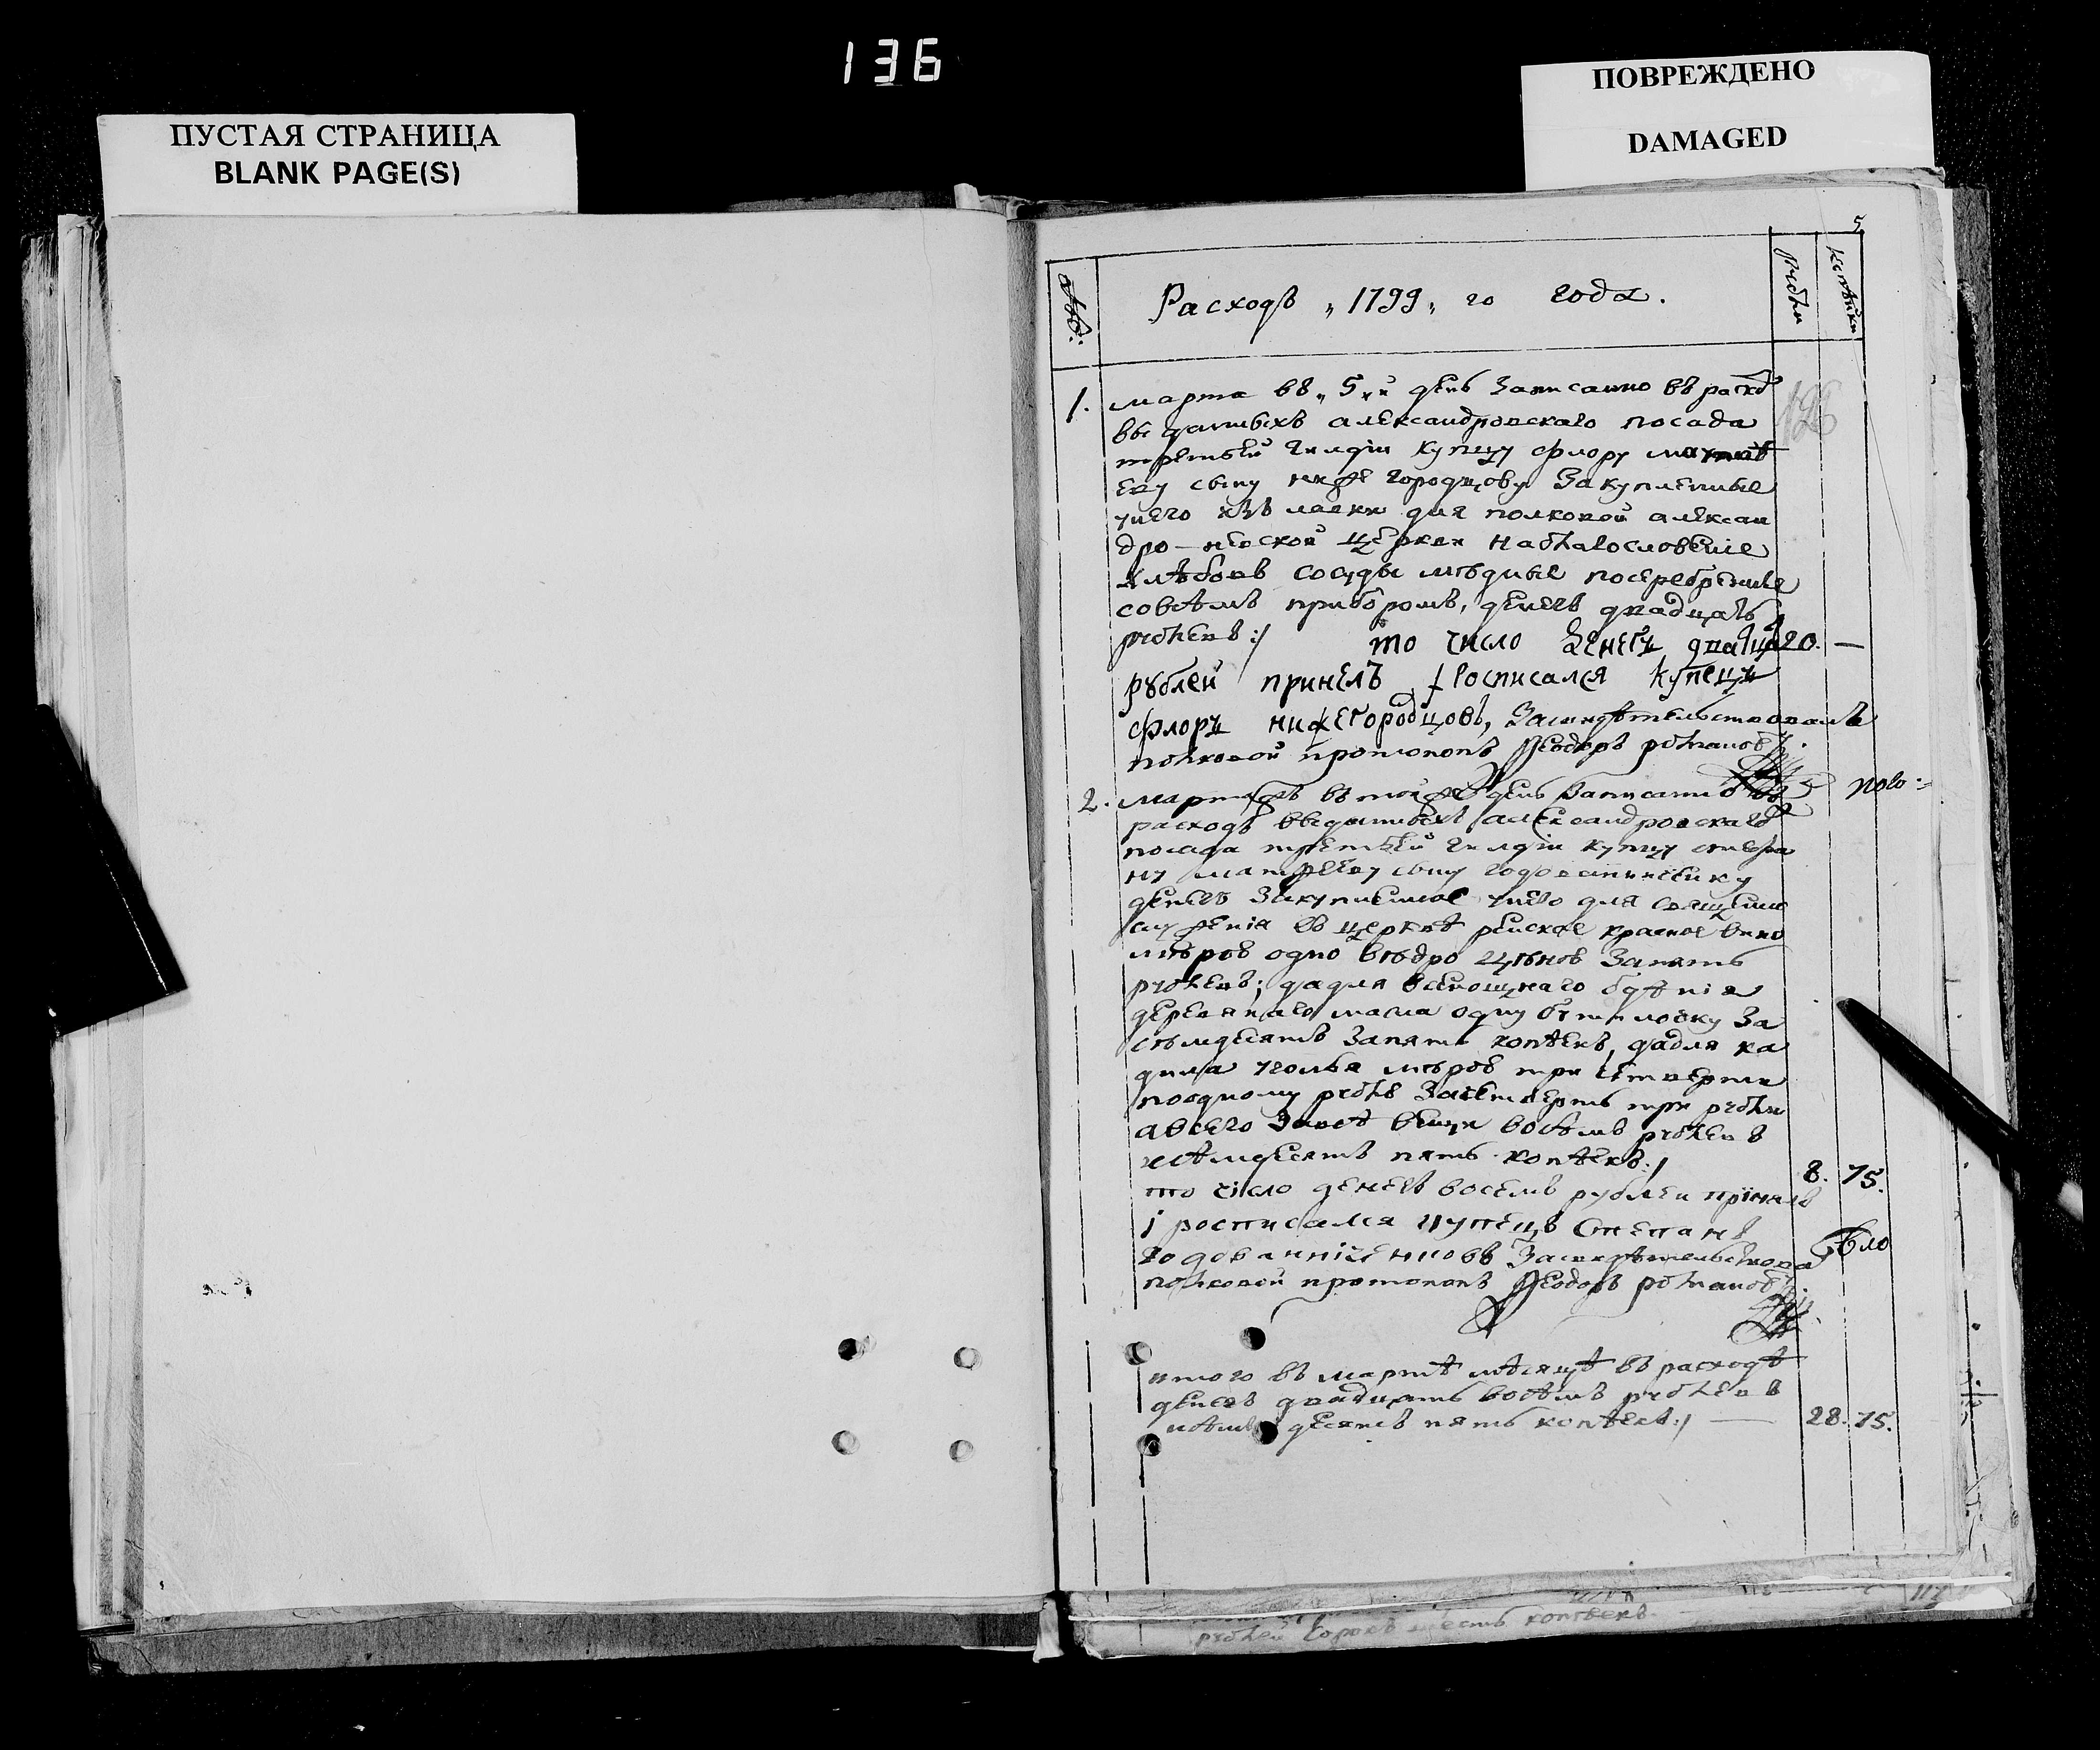 136
ПУСТАЯ СТРАНИЦА
BLANK PAGE(S)
ПОВРЕЖДЕНО
DAMAGED
5
Расходъ „1799„ го года.
рубли
копѣйки
1. марта въ „5„й день записанно въ расхо
выданныхъ александровскаго посада
третьей гилдіи купцу флору
еву сыну ниже городцову за купленные
унего изъ лавки для полковой алексан
дро-невской церкви наблагословеніе
хлѣбовъ сосуды мѣдные посеребренные
совсѣмъ приборомъ, денегъ двадцать
рублевъ :/ 20. —
то число денегъ двацать
рублей принелъ і росписался купецъ
флоръ нижегородцовъ, Засвидѣтельствовалъ
полковой протопопъ Ѳеодоръ романовъ.
2. марта въ тойже день записанно въ
расходъ выданныхъ александровскаго
посада третьей гилдіи купцу степа
ну матвееву сыну годованниченку
денегъ закупленное унего для священно
служенія въ церквѣ ренское красное вино
мѣрою одно вѣдро цѣною запять
рублевъ; дадля всенощнаго бдѣнія
деревяннаго масла одну бутиловку за
сѣмдесятъ запять копѣекъ, дадля ка
дила уголья мѣрою три четверти
поодному рублю зачетверть три рубли
авсего заисѣ вещи восѣмъ рублевъ
исѣмдесятъ пять копѣекъ :/ 8. 75.
то число денегъ восемъ рублеи принялъ
і росписался купецъ Степанъ
годованниченковъ Засвидѣтельствова
полковой протопопъ Ѳеодоръ романовъ.
итого въ мартѣ мѣсяцѣ въ расходѣ
денегъ двадцать восѣмъ рублевъ
исѣмъ десятъ пять копѣекъ :/ — 28. 75.
рублей сорокъ шесть копѣекъ